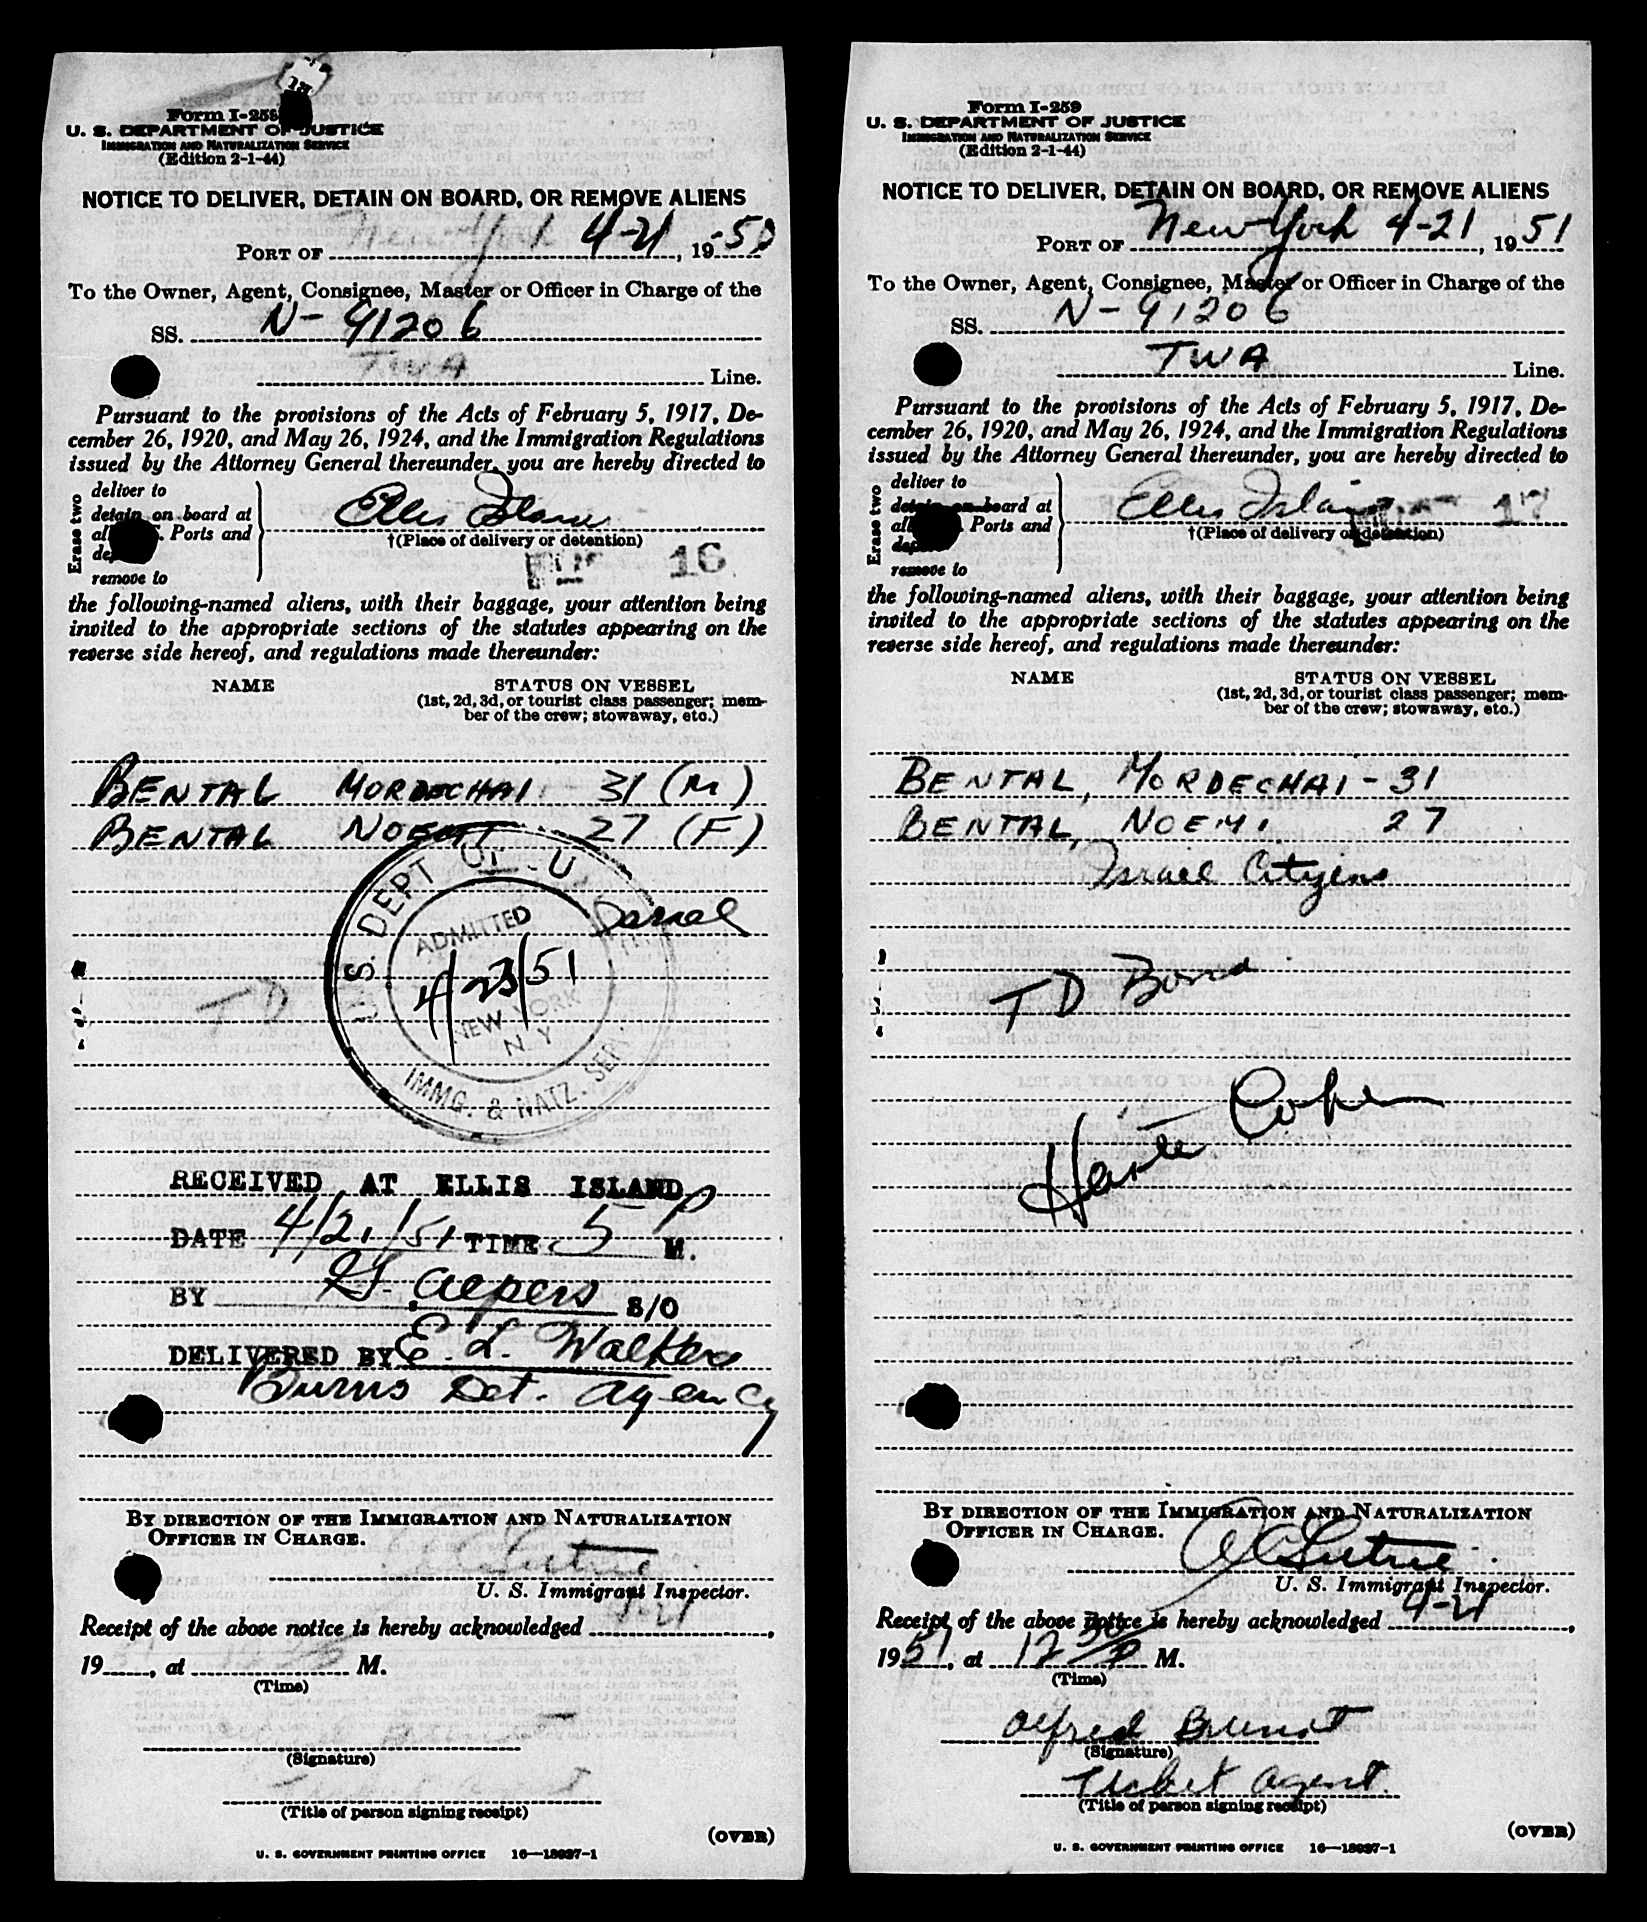 Form I-259
U. S. DEPARTMENT OF JUSTICE
IMMIGRATION AND NATURALIZATION SERVICE
(Edition 2-1-44)
NOTICE TO DELIVER, DETAIN ON BOARD, OR REMOVE ALIENS
PORT OF New York 4-21, 19
To the Owner, Agent, Consignee, Master or Officer in Charge of the
SS. N-91206
TWA Line.
Pursuant to the provisions of the Acts of February 5, 1917, De-
cember 26, 1920, and May 26, 1924, and the Immigration Regulations
issued by the Attorney General thereunder, you are hereby directed to
Erase two
deliver to
detain on board at
all Ports and
remove to
Ellis Island
†(Place of delivery or detention)
16
the following-named aliens, with their baggage, your attention being
invited to the appropriate sections of the statutes appearing on the
reverse side hereof, and regulations made thereunder:
NAME STATUS ON VESSEL
(1st, 2d, 3d, or tourist class passenger; mem-
ber of the crew; stowaway, etc.)
BENTAL MORDECHAI 31 (M)
BENTAL NOEMI 27 (F)
Israel
T D
U.S. DEPT OF JU
ADMITTED
4/23/51
NEW YORK
N Y
IMMG. & NATZ. SER.
RECEIVED AT ELLIS ISLAND
DATE 4/21/51 TIME 5 P M.
BY Alpers S/O
DELIVERED BY E. L. Walker
Burns Det. Agency
BY DIRECTION OF THE IMMIGRATION AND NATURALIZATION
OFFICER IN CHARGE.
U. S. Immigrant Inspector.
Receipt of the above notice is hereby acknowledged 4-21,
19 51, at 12 M.
(Time)
(Signature)
Ticket Agent
(Title of person signing receipt)
(OVER)
U. S. GOVERNMENT PRINTING OFFICE 16—18037-1
Form I-259
U. S. DEPARTMENT OF JUSTICE
IMMIGRATION AND NATURALIZATION SERVICE
(Edition 2-1-44)
NOTICE TO DELIVER, DETAIN ON BOARD, OR REMOVE ALIENS
PORT OF New York 4-21, 19 51
To the Owner, Agent, Consignee, Master or Officer in Charge of the
SS. N-91206
TWA Line.
Pursuant to the provisions of the Acts of February 5, 1917, De-
cember 26, 1920, and May 26, 1924, and the Immigration Regulations
issued by the Attorney General thereunder, you are hereby directed to
Erase two
deliver to
detain on board at
all Ports and
remove to
Ellis Island
†(Place of delivery or detention)
17
the following-named aliens, with their baggage, your attention being
invited to the appropriate sections of the statutes appearing on the
reverse side hereof, and regulations made thereunder:
NAME STATUS ON VESSEL
(1st, 2d, 3d, or tourist class passenger; mem-
ber of the crew; stowaway, etc.)
BENTAL, MORDECHAI - 31
BENTAL, NOEMI 27
Israel Citizens
T D Bond
BY DIRECTION OF THE IMMIGRATION AND NATURALIZATION
OFFICER IN CHARGE.
U. S. Immigrant Inspector.
Receipt of the above notice is hereby acknowledged 4-21,
19 51, at 12 30 P M.
(Time)
Alfred
(Signature)
Ticket Agent.
(Title of person signing receipt)
(OVER)
U. S. GOVERNMENT PRINTING OFFICE 16—18037-1